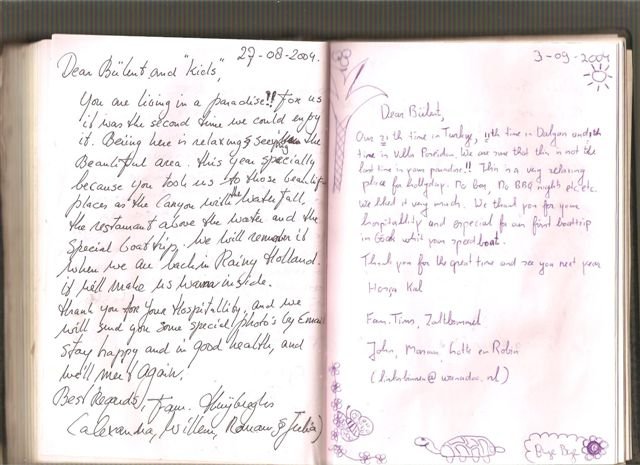 27-08-2004.
Dear Bülent and "Kids",
You are living in a paradise!! For us
it was the second time we could enjoy
it. Being here is relaxing & seeing the
Beautiful area. this year specially
because you took us to those beautiful
places as the Canyon with the waterfall,
the restaurant above the water and the
special boottrip, we will remember it
when we are back in Rainy Holland.
it will make us warm inside.
thank you for your Hospitallity, and we
will send you some special photo's by Email
stay happy and in good health, and
we'll meet again.
Best Regards, Fam.
(alexandra, Willem, Romano & Julia)
3-09-2004
Dear Bülent,
Our time in Turkye, 11th time in Dalyan and
time in Villa Poseidon. We are sure that this is not the
last time in your paradise!! This is a very relaxing
place for hollydays. No bar, No BBQ nights etc. etc.
We liked it very much. We thank you for your
hospitallity and especial for our first boottrip
in Gocek whit your speed boat.
Thank you for the great time and see you next year
Hosça Kal
Fam. Tims, Zaltbommel
John, lotte en Robin
@wanadoo.nl)